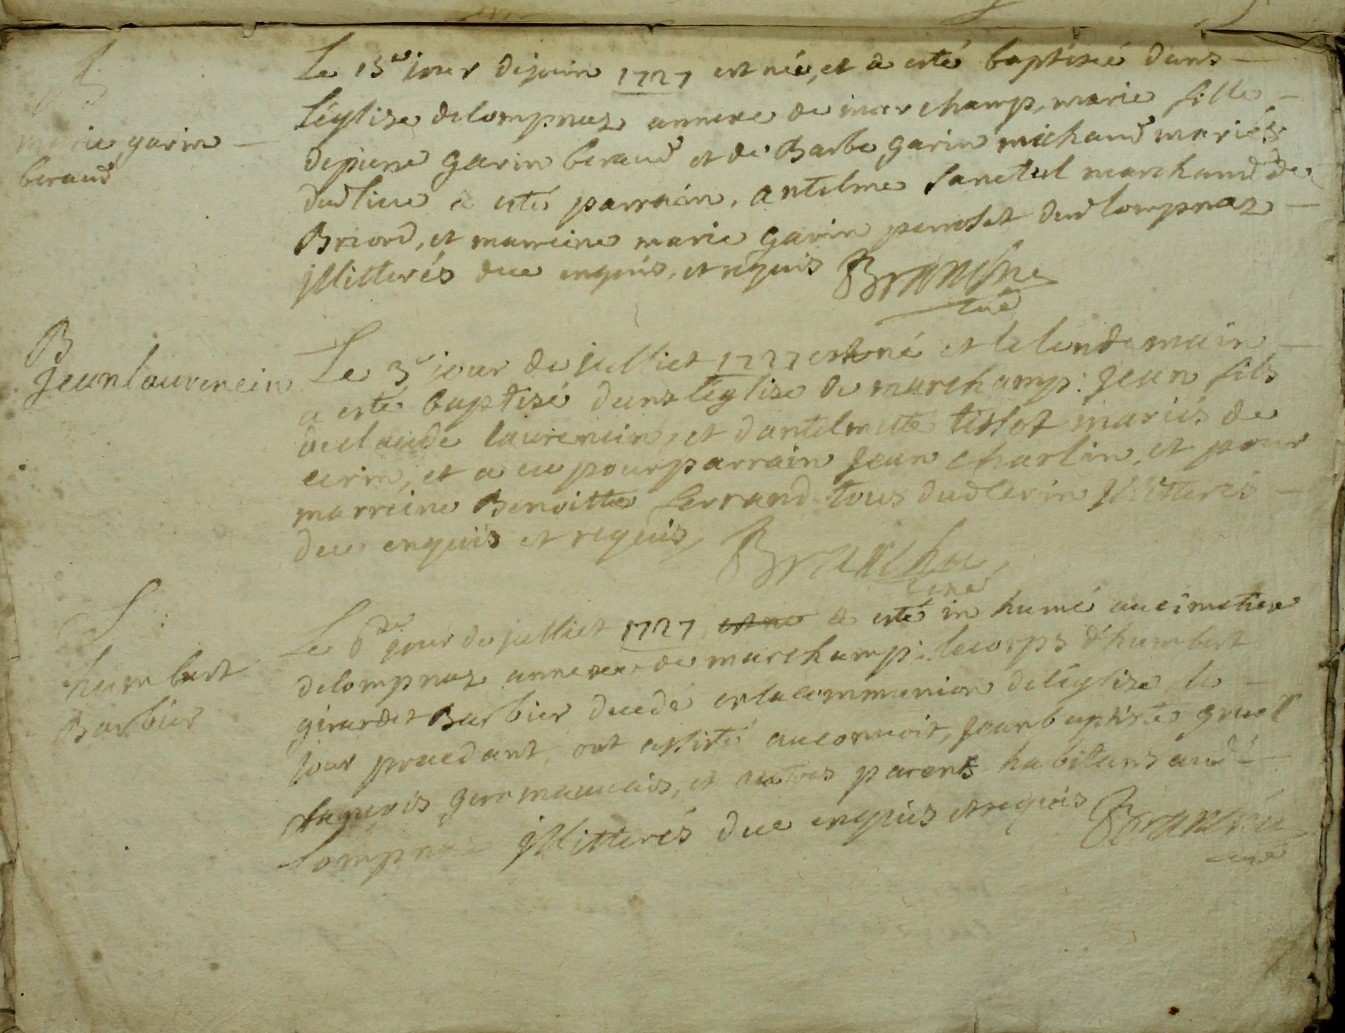 B
marie garin
beraud
Le 13e jour de juin 1727 est née, et a esté baptisée dans
l'église de lompnaz annexe de marchamp, marie fille
de pierre garin beraud et de Barbe garin michaud mariés
dud lieu a esté parrain, antelme sanctul marchand de
Briord, et marreine marie garin perroset dud lompnaz
jllitterés de ce enquis, et requis Branche
curé
B
jean laurencin
Le 3e jour de julliet 1727 est né et le lendemain
a esté baptisé dans l'église de marchamp: jean fils
de claude laurencin, et d'antelmette tissot mariés de
cerin, et a eu pour parrain jean charlin, et pour
marreine Benoitte ferrand tous dud cerin jllitterés
de ce enquis et requis, Branche
curé
S
humbert
Barbier
Le jour de julliet 1727 est né a esté inhumé au cimetiere
de lompnaz annexe de marchamp: le corps d'humbert
girardet Barbier decedé en la communion de l'églize le
jour precedant, ont assisté au convoit, jean baptiste
et autres parens habitans aud
lompnaz jllitterés de ce enquis et requis Branche
curé